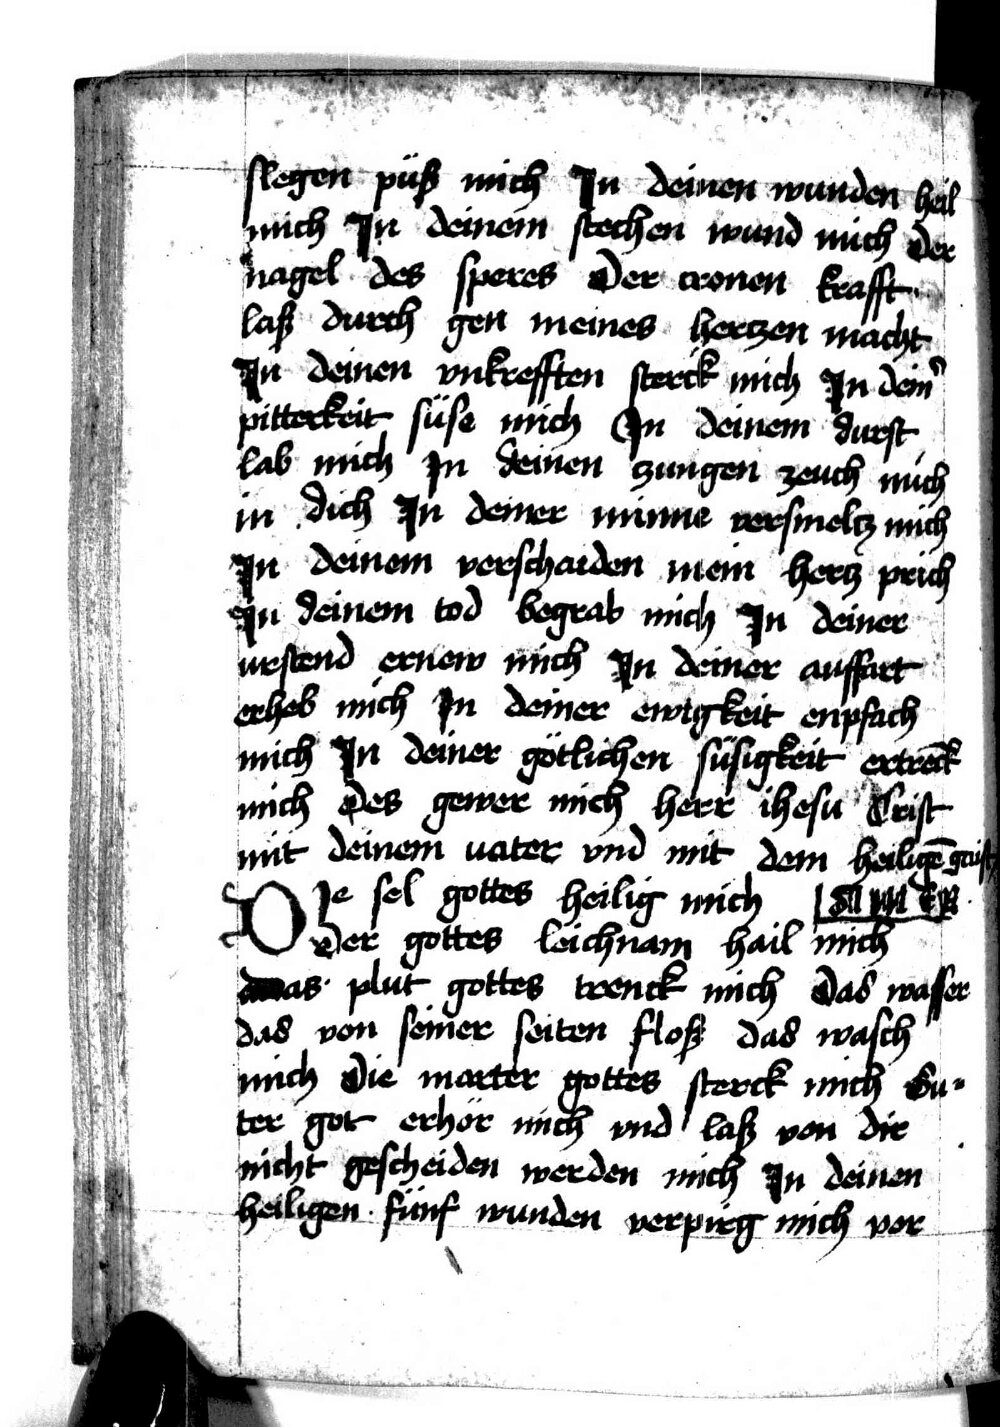 slegen püß mich In deinen wunden heil
mich In deinem stechen wund mich Der
nagel des speres Der cronen krafft
laß durch gen meines hertzen macht
In deinen vnkrefften sterck mich In dein̄
pitterkeit süse mich In deinem durst
lab mich In deinen zungen zeuch mich
in dich In deiner minne versmeltz mich
In deinem verschaiden mein hertz prich
In deinem tod begrab mich In deiner
urstend ernew mich In deiner auffart
erheb mich In deiner ewigkeit enpfach
mich In deiner götlichen süsigkeit ertrēck
mich Des gewer mich herr ihesu Crist
mit deinem uater vnd mit dem heiligē geist
Die sel gottes heilig mich
Der gottes leichnam hail mich
das plut gottes trenck mich Das wasser
das von seiner seiten floß das wasch
mich Die marter gottes sterck mich Gu-
ter got erhör mich vnd laß von dir
nicht gescheiden werden mich In deinen
heiligen fünf wunden verpirg mich vor